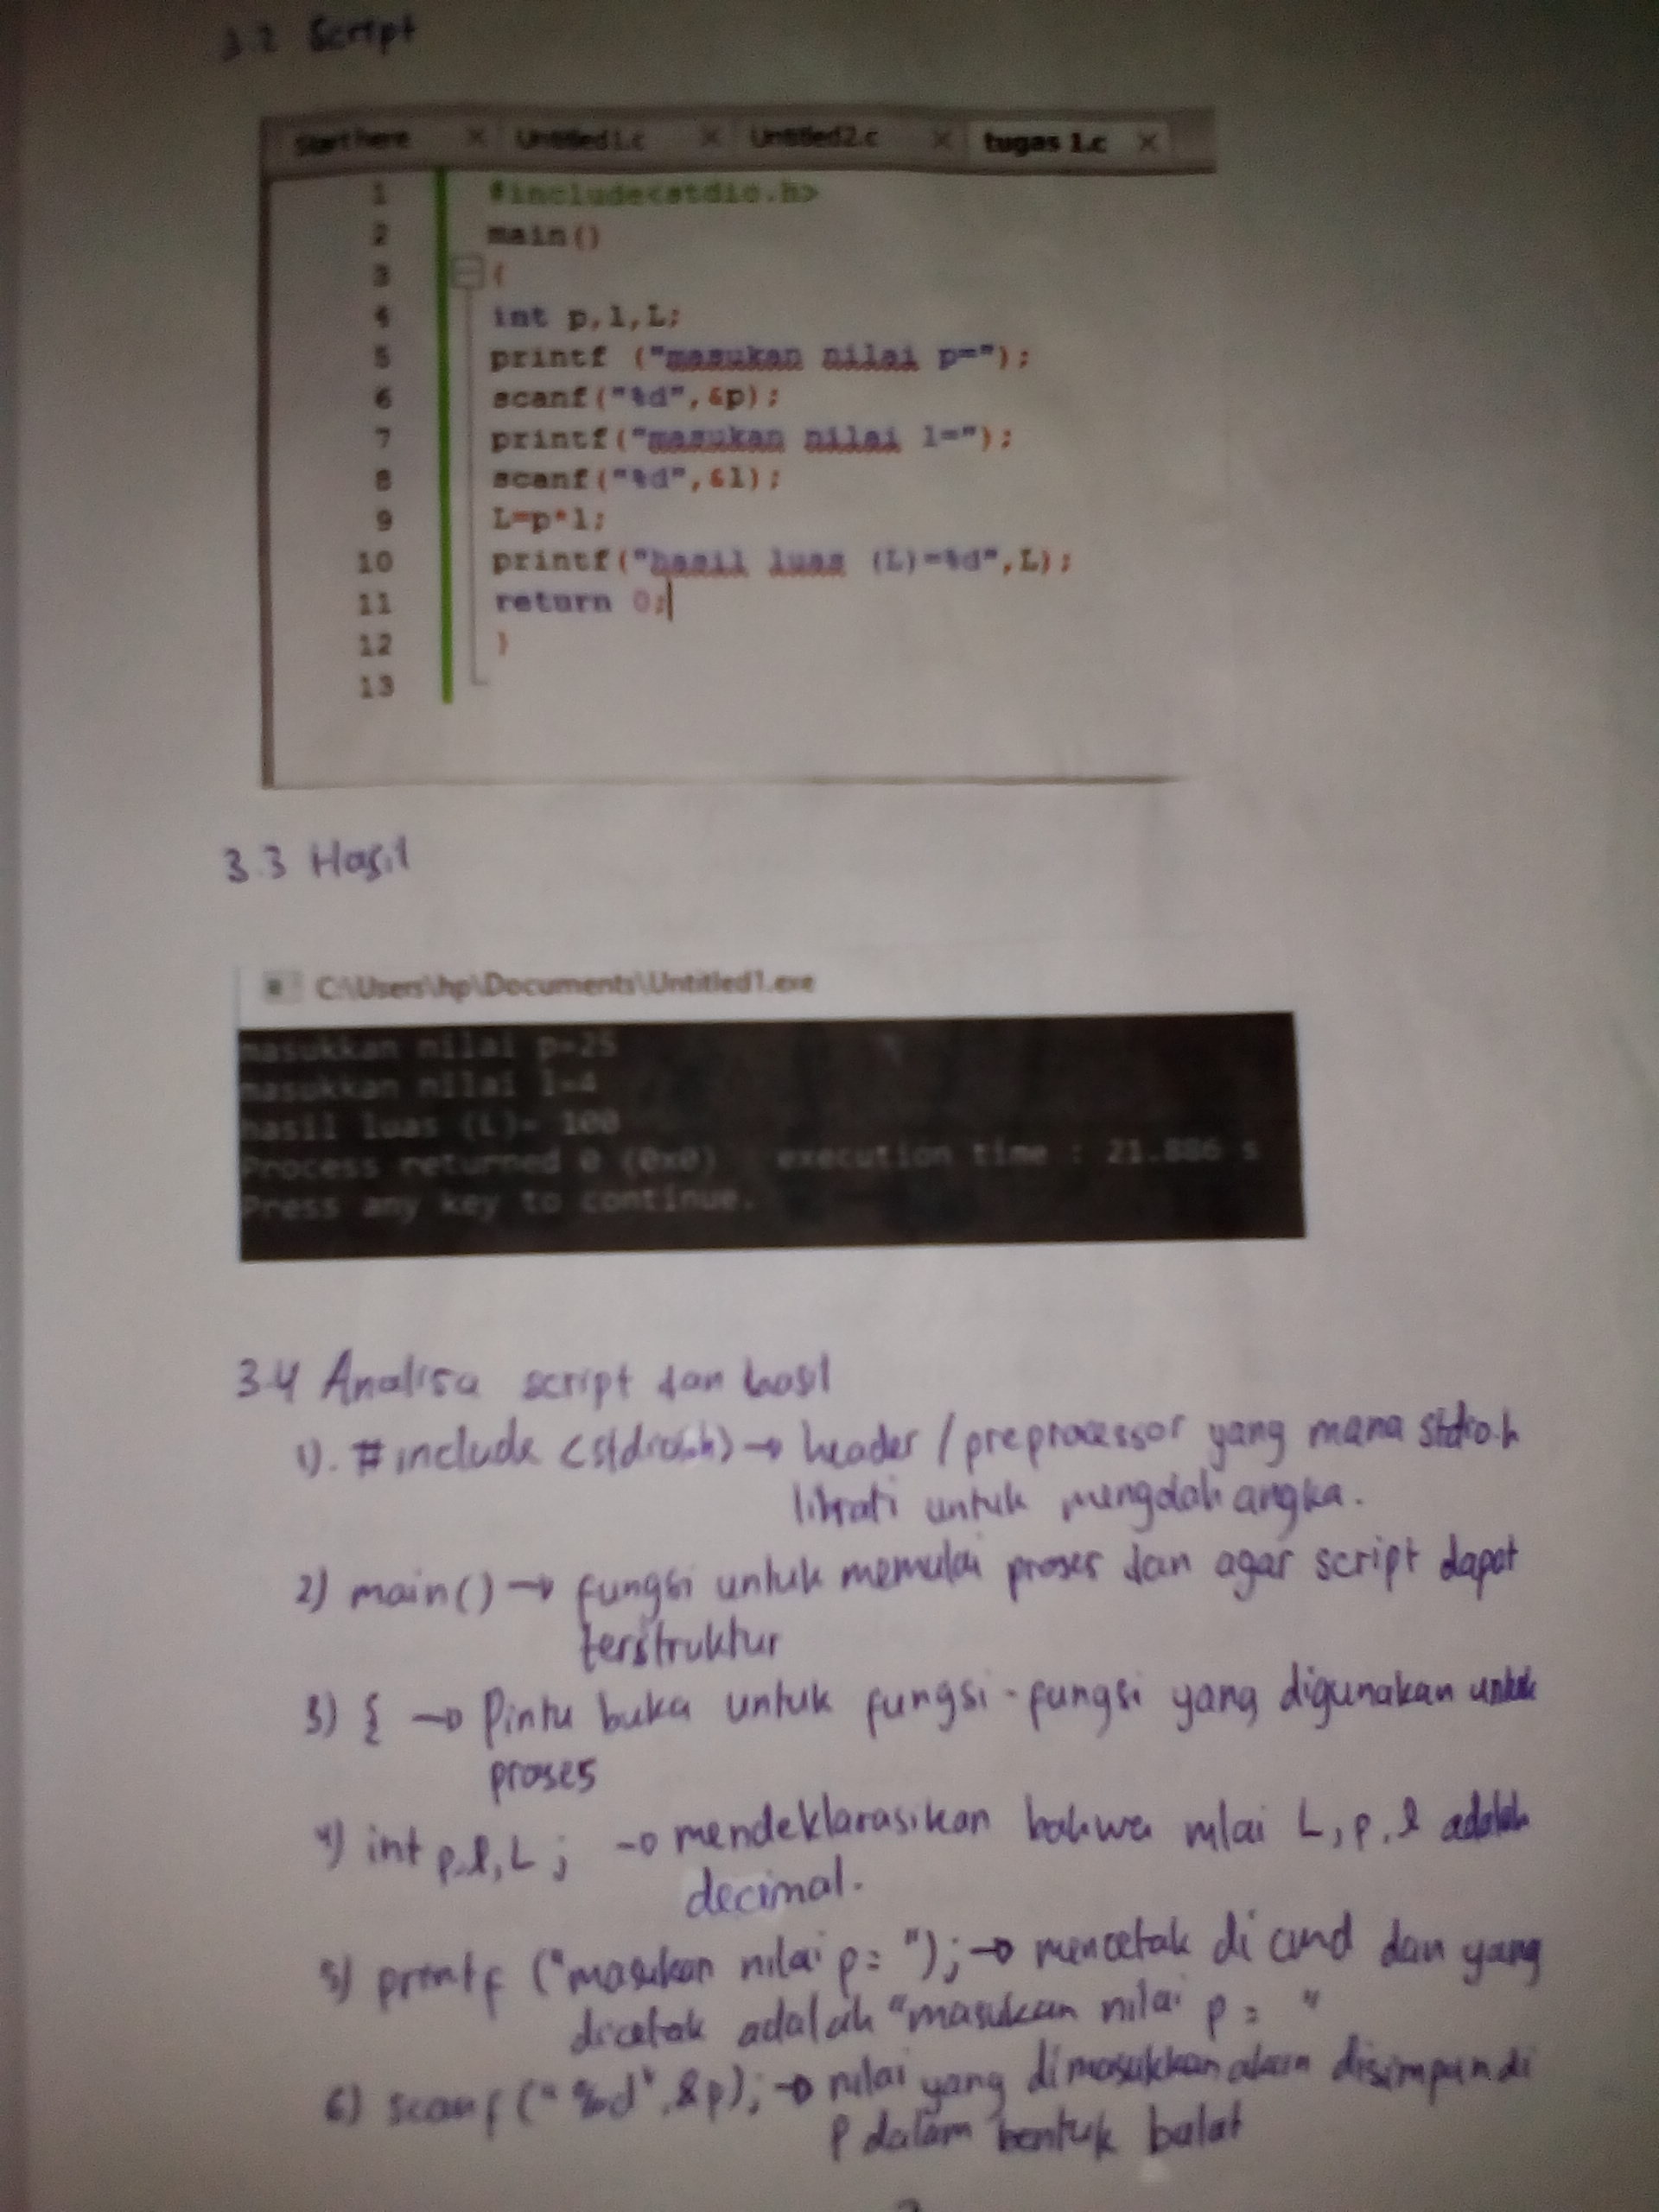 3.2 Script
Start here × Untitled1.c × Untitled2.c × tugas 1.c ×
1 #include<stdio.h>
2 main()
3 {
4 int p,l,L;
5 printf ("masukan nilai p=");
6 scanf("%d",&p);
7 printf("masukan nilai l=");
8 scanf("%d",&l);
9 L=p*l;
10 printf("hasil luas (L)=%d",L);
11 return 0;
12 }
13
3.3 Hasil
C:\Users\hp\Documents\Untitled1.exe
masukkan nilai p=25
masukkan nilai l=4
hasil luas (L)= 100
Process returned 0 (0x0) execution time : 21.886 s
Press any key to continue.
3.4 Analisa script dan hasil
1). #include → header / preprocessor yang mana stdio.h
librari untuk mengolah angka.
2) main() → fungsi untuk memulai proses dan agar script dapat
terstruktur
3) { → Pintu buka untuk fungsi-fungsi yang digunakan untuk
proses
4) int p,l,L; → mendeklarasikan bahwa nilai L, p, l adalah
decimal.
5) printf ("masukan nilai p= "); → mencetak di cmd dan yang
dicetak adalah "masukan nilai p= "
6) scanf ("%d", &p); → nilai yang dimasukkan akan disimpan di
p dalam bentuk bulat